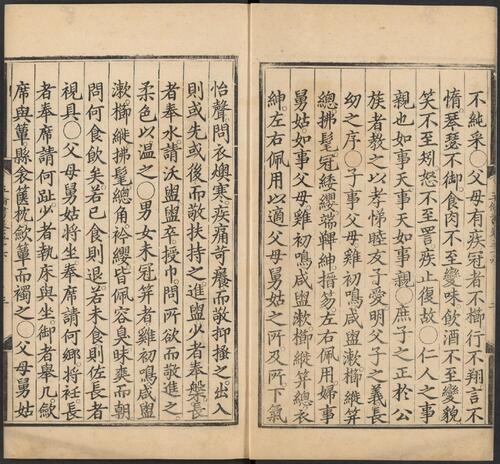 不純采○父母有疾冠者不櫛行不翔言不
惰琴瑟不御食肉不至變味飲酒不至變貌
笑不至矧怒不至詈疾止復故○仁人之事
親也如事天事天如事親○庶子之正於公
族者教之以孝悌睦友子愛明父子之義長
幼之序○子事父母雞初鳴咸盥漱櫛縰笄
總拂髦冠緌纓端鞸紳搢笏左右佩用婦事
舅姑如事父母雞初鳴咸盥漱櫛縰笄總衣
紳左右佩用以適父母舅姑之所及所下氣
怡聲問衣燠寒疾痛苛癢而敬抑搔之出入
則或先或後而敬扶持之進盥少者奉槃長
者奉水請沃盥盥卒授巾問所欲而敬進之
柔色以温之○男女未冠笄者雞初鳴咸盥
漱櫛縰拂髦總角衿纓皆佩容臭昧爽而朝
問何食飲矣若已食則退若未食則佐長者
視具○父母舅姑將坐奉席請何鄉將衽長
者奉席請何趾少者執床與坐御者舉几歛
席與簟縣衾篋枕歛簟而襡之○父母舅姑